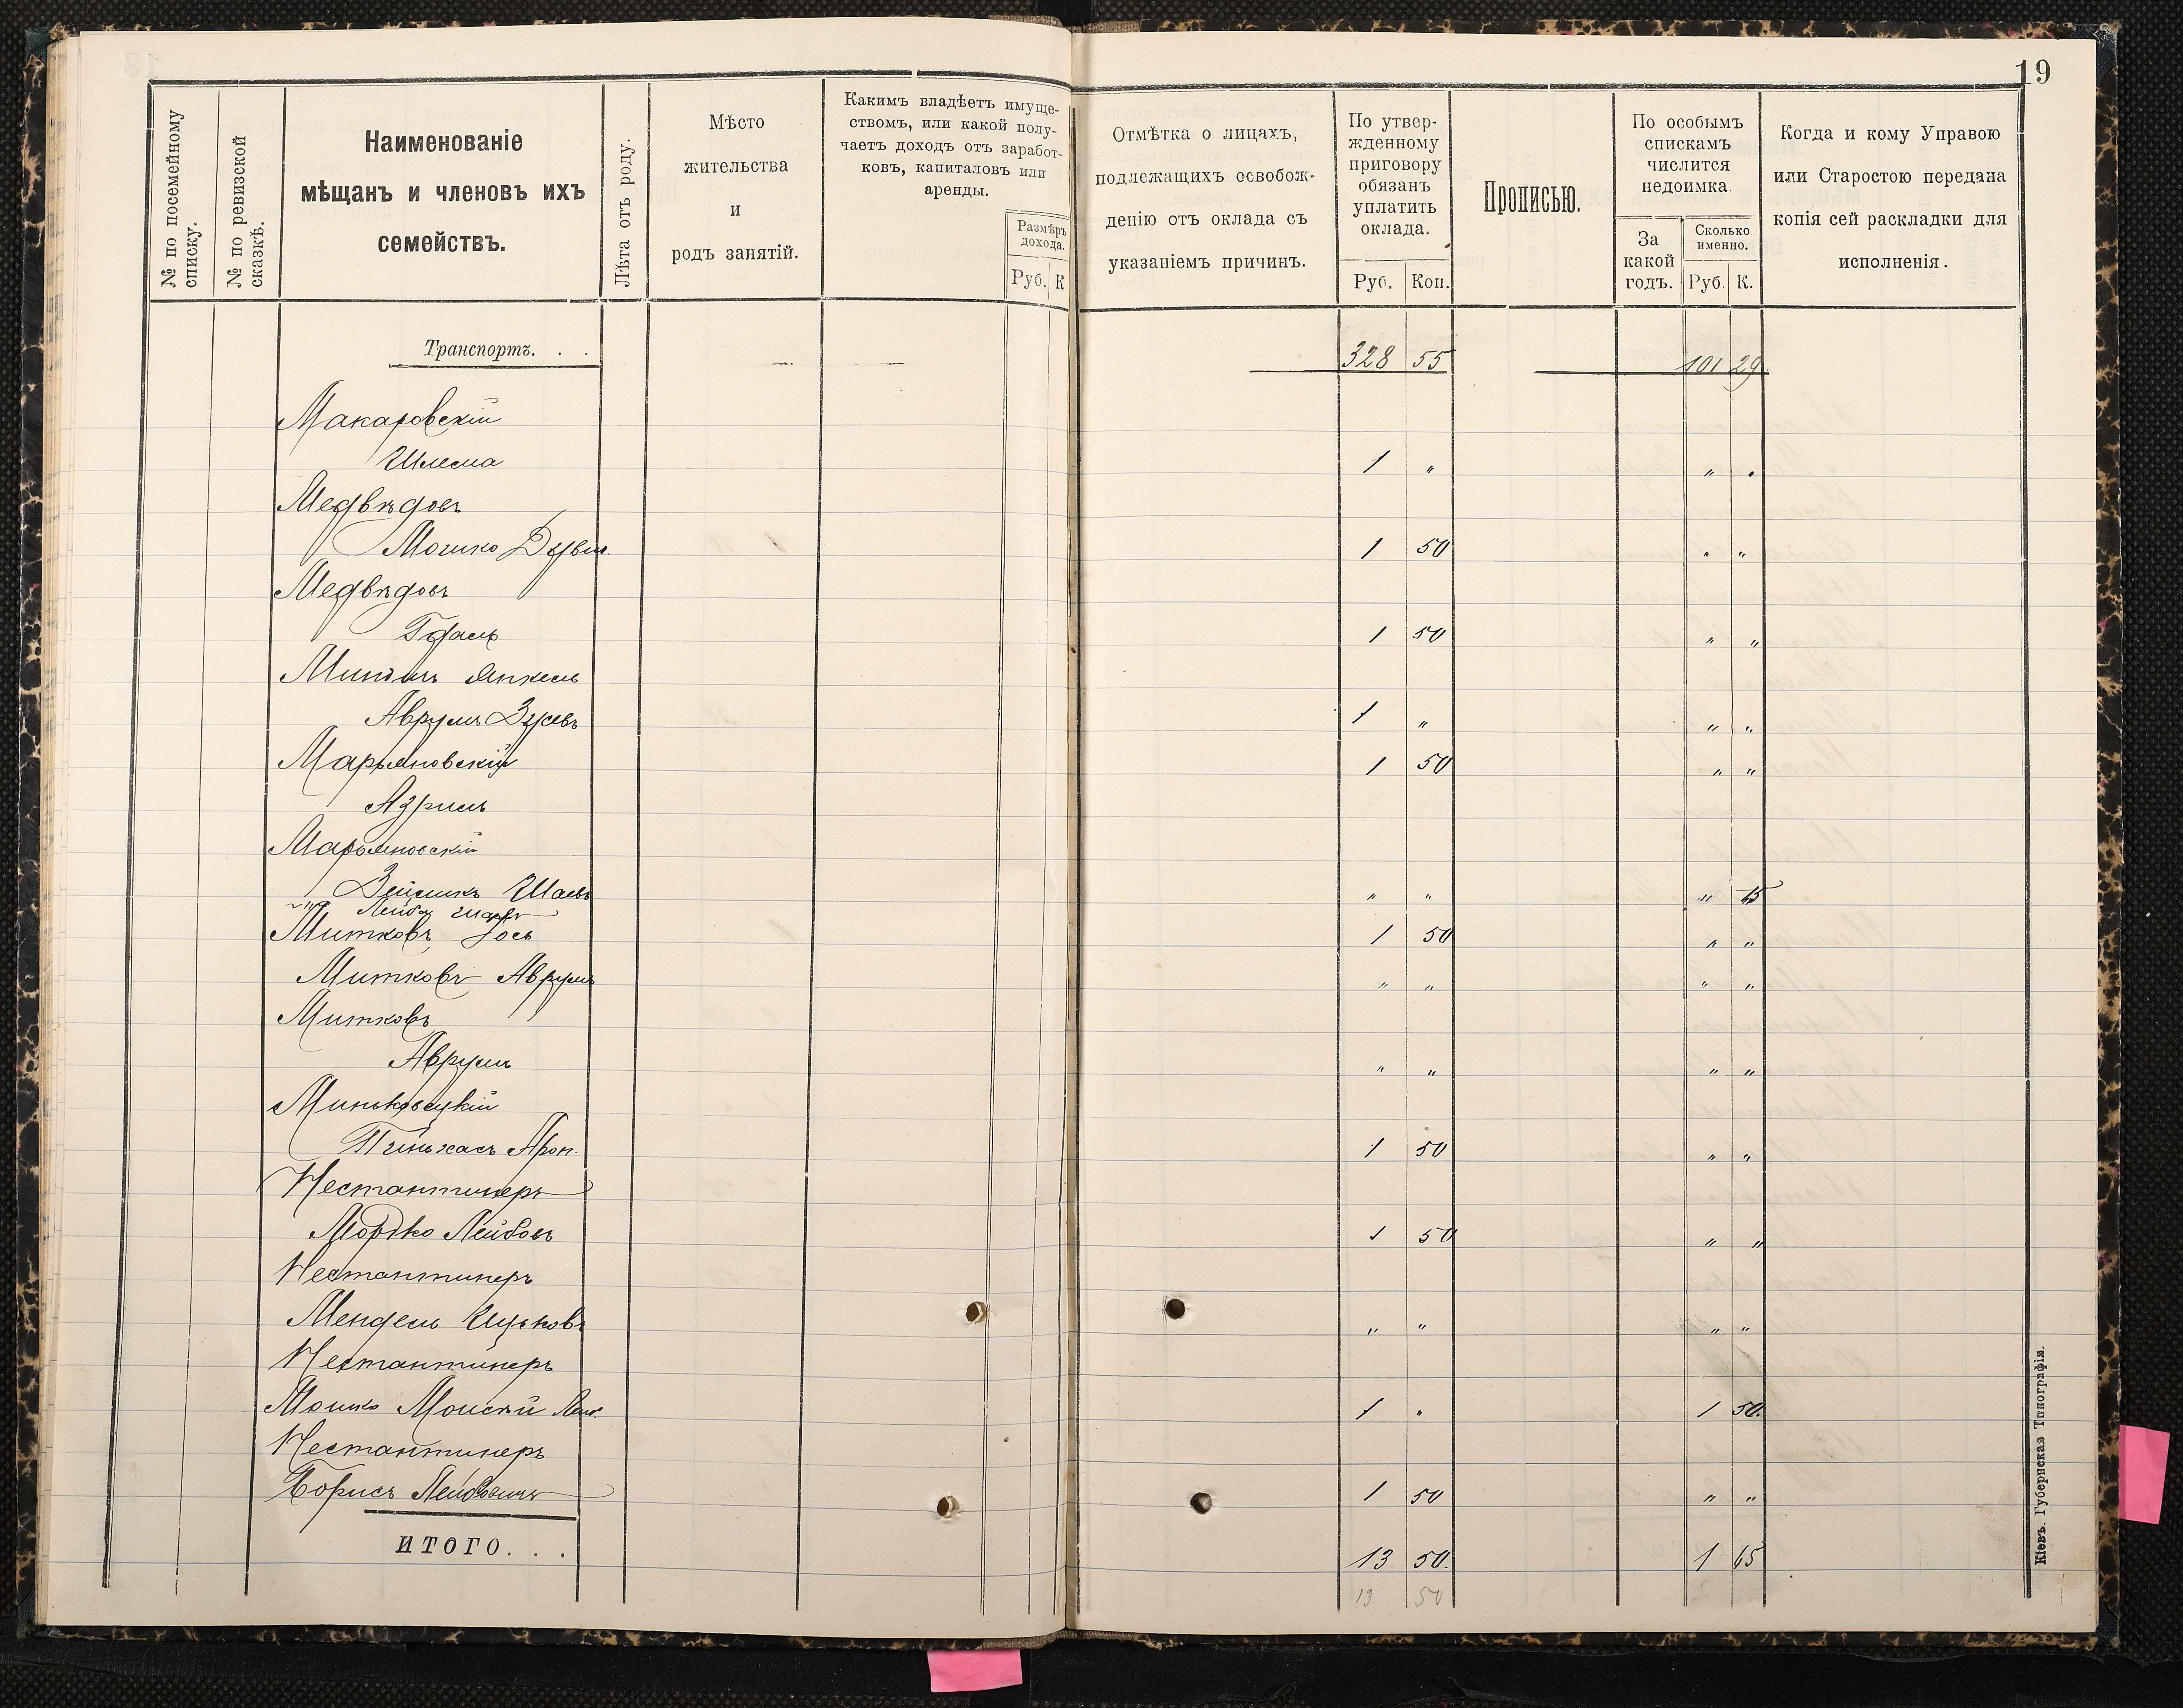 19
№ по посемейному
списку.
№ по ревизской
сказкѣ.
Наименованіе
мѣщанъ и членовъ ихъ
семействъ.
Лѣта отъ роду.
Мѣсто
жительства
и
родъ занятій.
Какимъ владѣетъ имуще-
ствомъ, или какой полу-
чаетъ доходъ отъ заработ-
ковъ, капиталовъ или
аренды.
Размѣръ
дохода.
Руб. К
Отмѣтка о лицахъ,
подлежащихъ освобож-
денію отъ оклада съ
указаніемъ причинъ.
По утвер-
жденному
приговору
обязанъ
уплатить
оклада.
Руб. Коп.
Прописью.
По особымъ
спискамъ
числится
недоимка.
За
какой
годъ.
Сколько
именно.
Руб. К.
Когда и кому Управою
или Старостою передана
копія сей раскладки для
исполненія.
Транспортъ. . . 328 55 101 29
Макаровскій
Шлема 1 " " "
Медвѣдовъ
Мошко Дувид. 1 50 " "
Медвѣдовъ
1 50 " "
Янкель
Аврумъ Зусевъ 1 " " "
Марьяновскій 1 50 " "
Азриль
Марьяновскій
Зейликъ Шаевъ " " " 15
Лейба Шаевъ
Митковъ Іось 1 50 " "
Митковъ Аврумъ " " " "
Митковъ
Аврумъ " " " "
Миньковецкій
Пиньхасъ Арон. 1 50 " "
Нестантинеръ
Мордко Лейбовъ 1 50 " "
Нестантинеръ
Мендель Ицьковъ " " " "
Нестантинеръ
Мошко Моисей Лейб. 1 " 1 50.
Нестантинеръ
Борисъ Лейбовичъ 1 50 " "
ИТОГО. . . 13 50. 1 65
13 50
Кіевъ. Губернская Типографія.